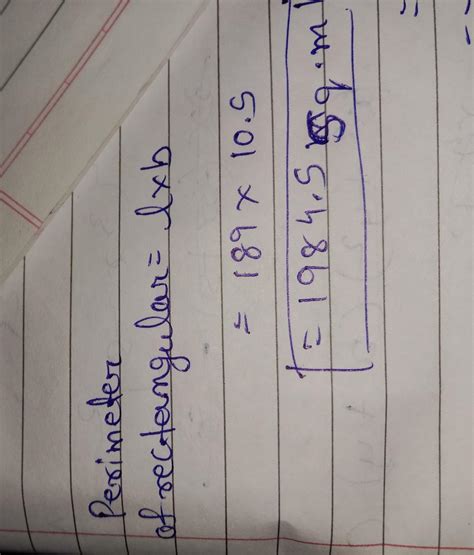 Perimeter
of rectangular = l×b
= 189 × 10.5
= 1984.5 sq.m